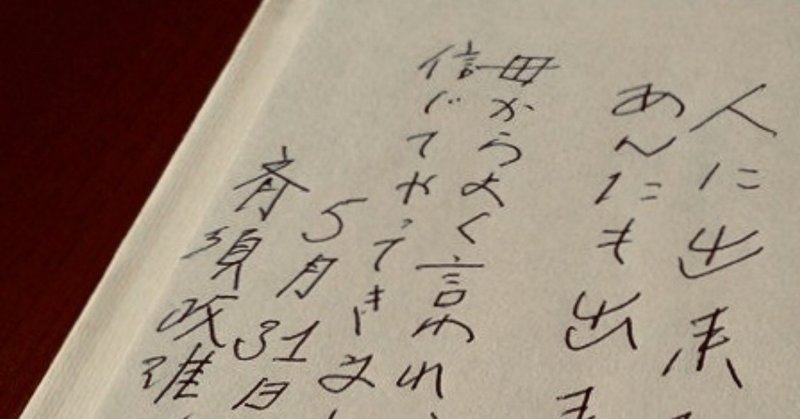 人に出来
あんたにも出
母からよく言われ
信じてやってきま
5月31日
斉須政雄